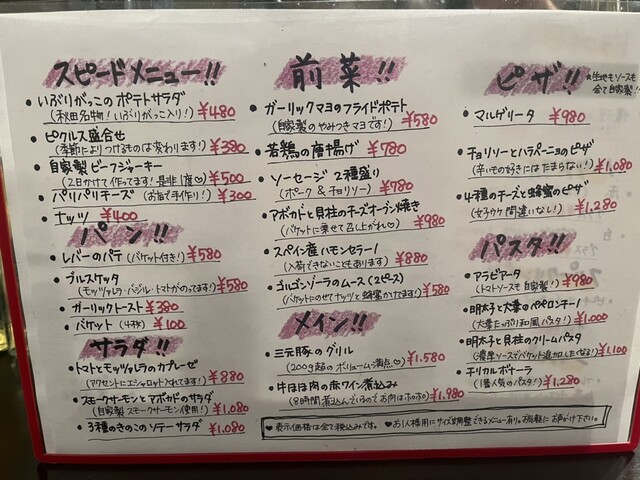 スピードメニュー!!
• いぶりがっこのポテトサラダ
(秋田名物!いぶりがっこ入り!) ¥480
• ピクルス盛合せ
(季節によりつけるものは変わります!) ¥380
• 自家製ビーフジャーキー
(2日かけて作ってます!是非1度♡) ¥500
• パリパリチーズ (お店で手作り!) ¥300
• ナッツ ¥400
パン!!
• レバーのパテ (バケット付き!) ¥580
• ブルスケッタ
(モッツァレラ・バジル・トマトがのってます!) ¥580
• ガーリックトースト ¥380
• バケット (4枚) ¥100
サラダ!!
• トマトとモッツァレラのカプレーゼ
(アクセントにエシャロット入れてます!) ¥880
• スモークサーモンとアボカドのサラダ
(自家製スモークサーモン使用!) ¥1,080
• 3種のきのこソテーサラダ ¥1,080
前菜!!
• ガーリックマヨのフライドポテト
(自家製のやみつきマヨです!) ¥580
• 若鶏の唐揚げ ¥780
• ソーセージ 2種盛り
(ポーク & チョリソー) ¥780
• アボカドと貝柱のチーズオーブン焼き
(バケットに乗せて召し上がれ♡) ¥980
• スペイン産ハモンセラーノ
(入荷できないこともあります) ¥880
• ゴルゴンゾーラのムース (2ピース)
(バケットにのせてナッツと蜂蜜かけてます!) ¥580
メイン!!
• 三元豚のグリル
(200g超のボリューム満点♡) ¥1,580
• 牛ほほ肉の赤ワイン煮込み
(8時間煮込んでいるのでお肉はホロホロ) ¥1,980
ピザ!!
★生地もソースも
全て自家製!!
• マルゲリータ ¥980
• チョリソーとハラペーニョのピザ
(辛いもの好きにはたまらない!) ¥1,080
• 4種のチーズと蜂蜜のピザ
(女子ウケ間違いなし!) ¥1,280
パスタ!!
• アラビアータ
(トマトソースも自家製!) ¥980
• 明太子と大葉のペペロンチーノ
(大葉たっぷり和風パスタ!) ¥1,000
• 明太子と貝柱のクリームパスタ
(濃厚ソースでバケット追加したくなる!) ¥1,100
• チリカルボナーラ
(1番人気のパスタ!) ¥1,280
♥表示価格は全て税込みです。 ♥お1人様用にサイズ調整できるメニュー有り。お気軽にお声がけ下さい。